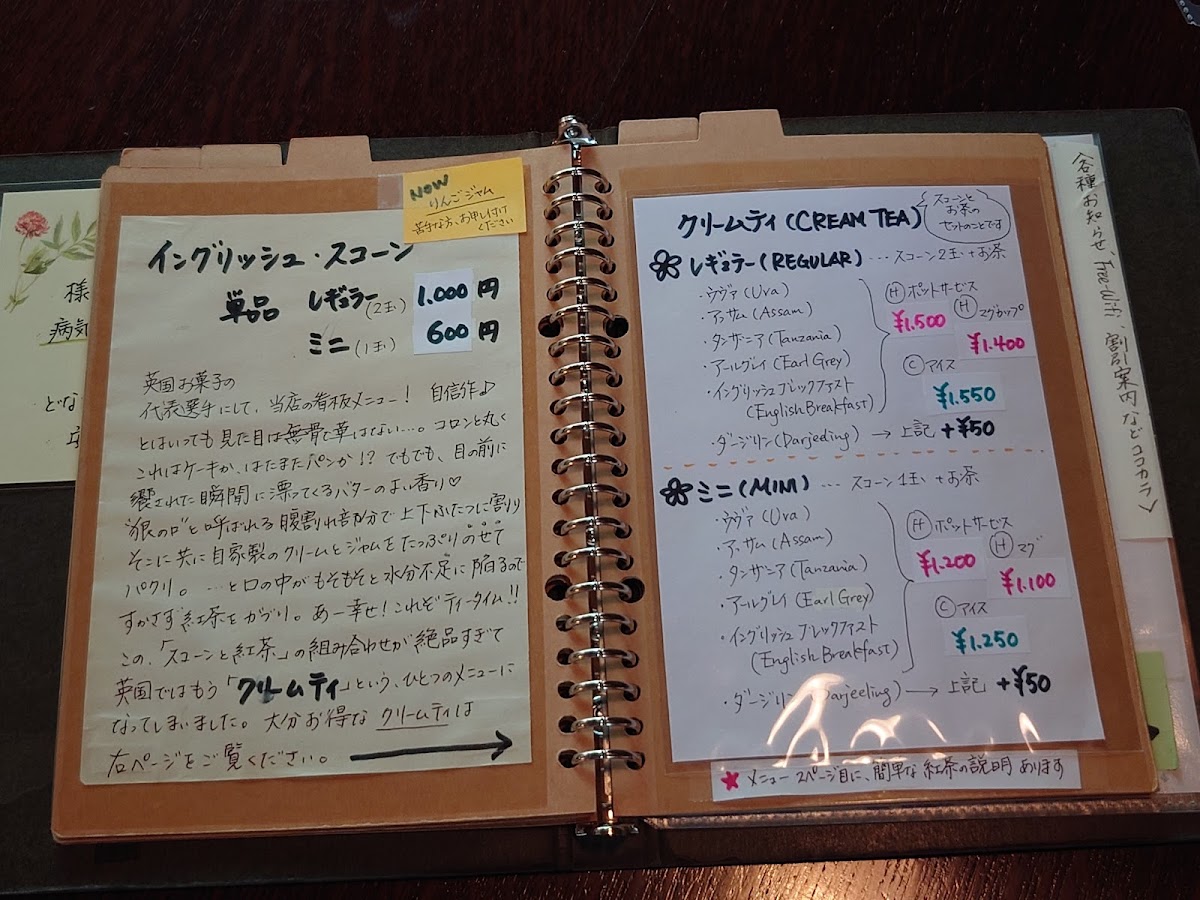 様
病気
どな
NOW
りんごジャム
苦手な方、お申し付け
ください
イングリッシュ・スコーン
単品 レギュラー(2玉) 1.000円
ミニ(1玉) 600円
英国お菓子の
代表選手にして、当店の看板メニュー! 自信作♪
とはいっても見た目は無骨で華はない…。コロンと丸く
これはケーキか、はたまたパンか!? でもでも、目の前に
饗された瞬間に漂ってくるバターのよい香り♡
"狼の口"と呼ばれる腹割れ部分で上下ふたつに割り
そこに共に自家製のクリームとジャムをたっぷりのせて
パクリ。…と口の中がもそもそと水分不足に陥るので
すかさず紅茶をガブリ。あー幸せ!これぞティータイム!!
この、「スコーンと紅茶」の組み合わせが絶品すぎて
英国ではもう「クリームティ」という、ひとつのメニューに
なってしまいました。大分お得なクリームティは
右ページをご覧ください。 →
クリームティ(CREAM TEA)
スコーンと
お茶の
セットのことです
レギュラー(REGULAR) … スコーン2玉+お茶
・ウヴァ(Uva)
・アッサム(Assam)
・タンザニア(Tanzania)
・アールグレイ(Earl Grey)
・イングリッシュブレックファスト
(English Breakfast)
Ⓗポットサービス
¥1.500
Ⓗマグカップ
¥1.400
Ⓒアイス
¥1.550
・ダージリン(Darjeeling) → 上記 +¥50
ミニ(MINI) … スコーン1玉+お茶
・ウヴァ(Uva)
・アッサム(Assam)
・タンザニア(Tanzania)
・アールグレイ(Earl Grey)
・イングリッシュブレックファスト
(English Breakfast)
Ⓗポットサービス
¥1.200
Ⓗマグ
¥1.100
Ⓒアイス
¥1.250
・ダージリン(Darjeeling) → 上記 +¥50
★メニュー2ページ目に、簡単な紅茶の説明あります
各種お知らせ、Free-Wifi、割引案内などココカラ